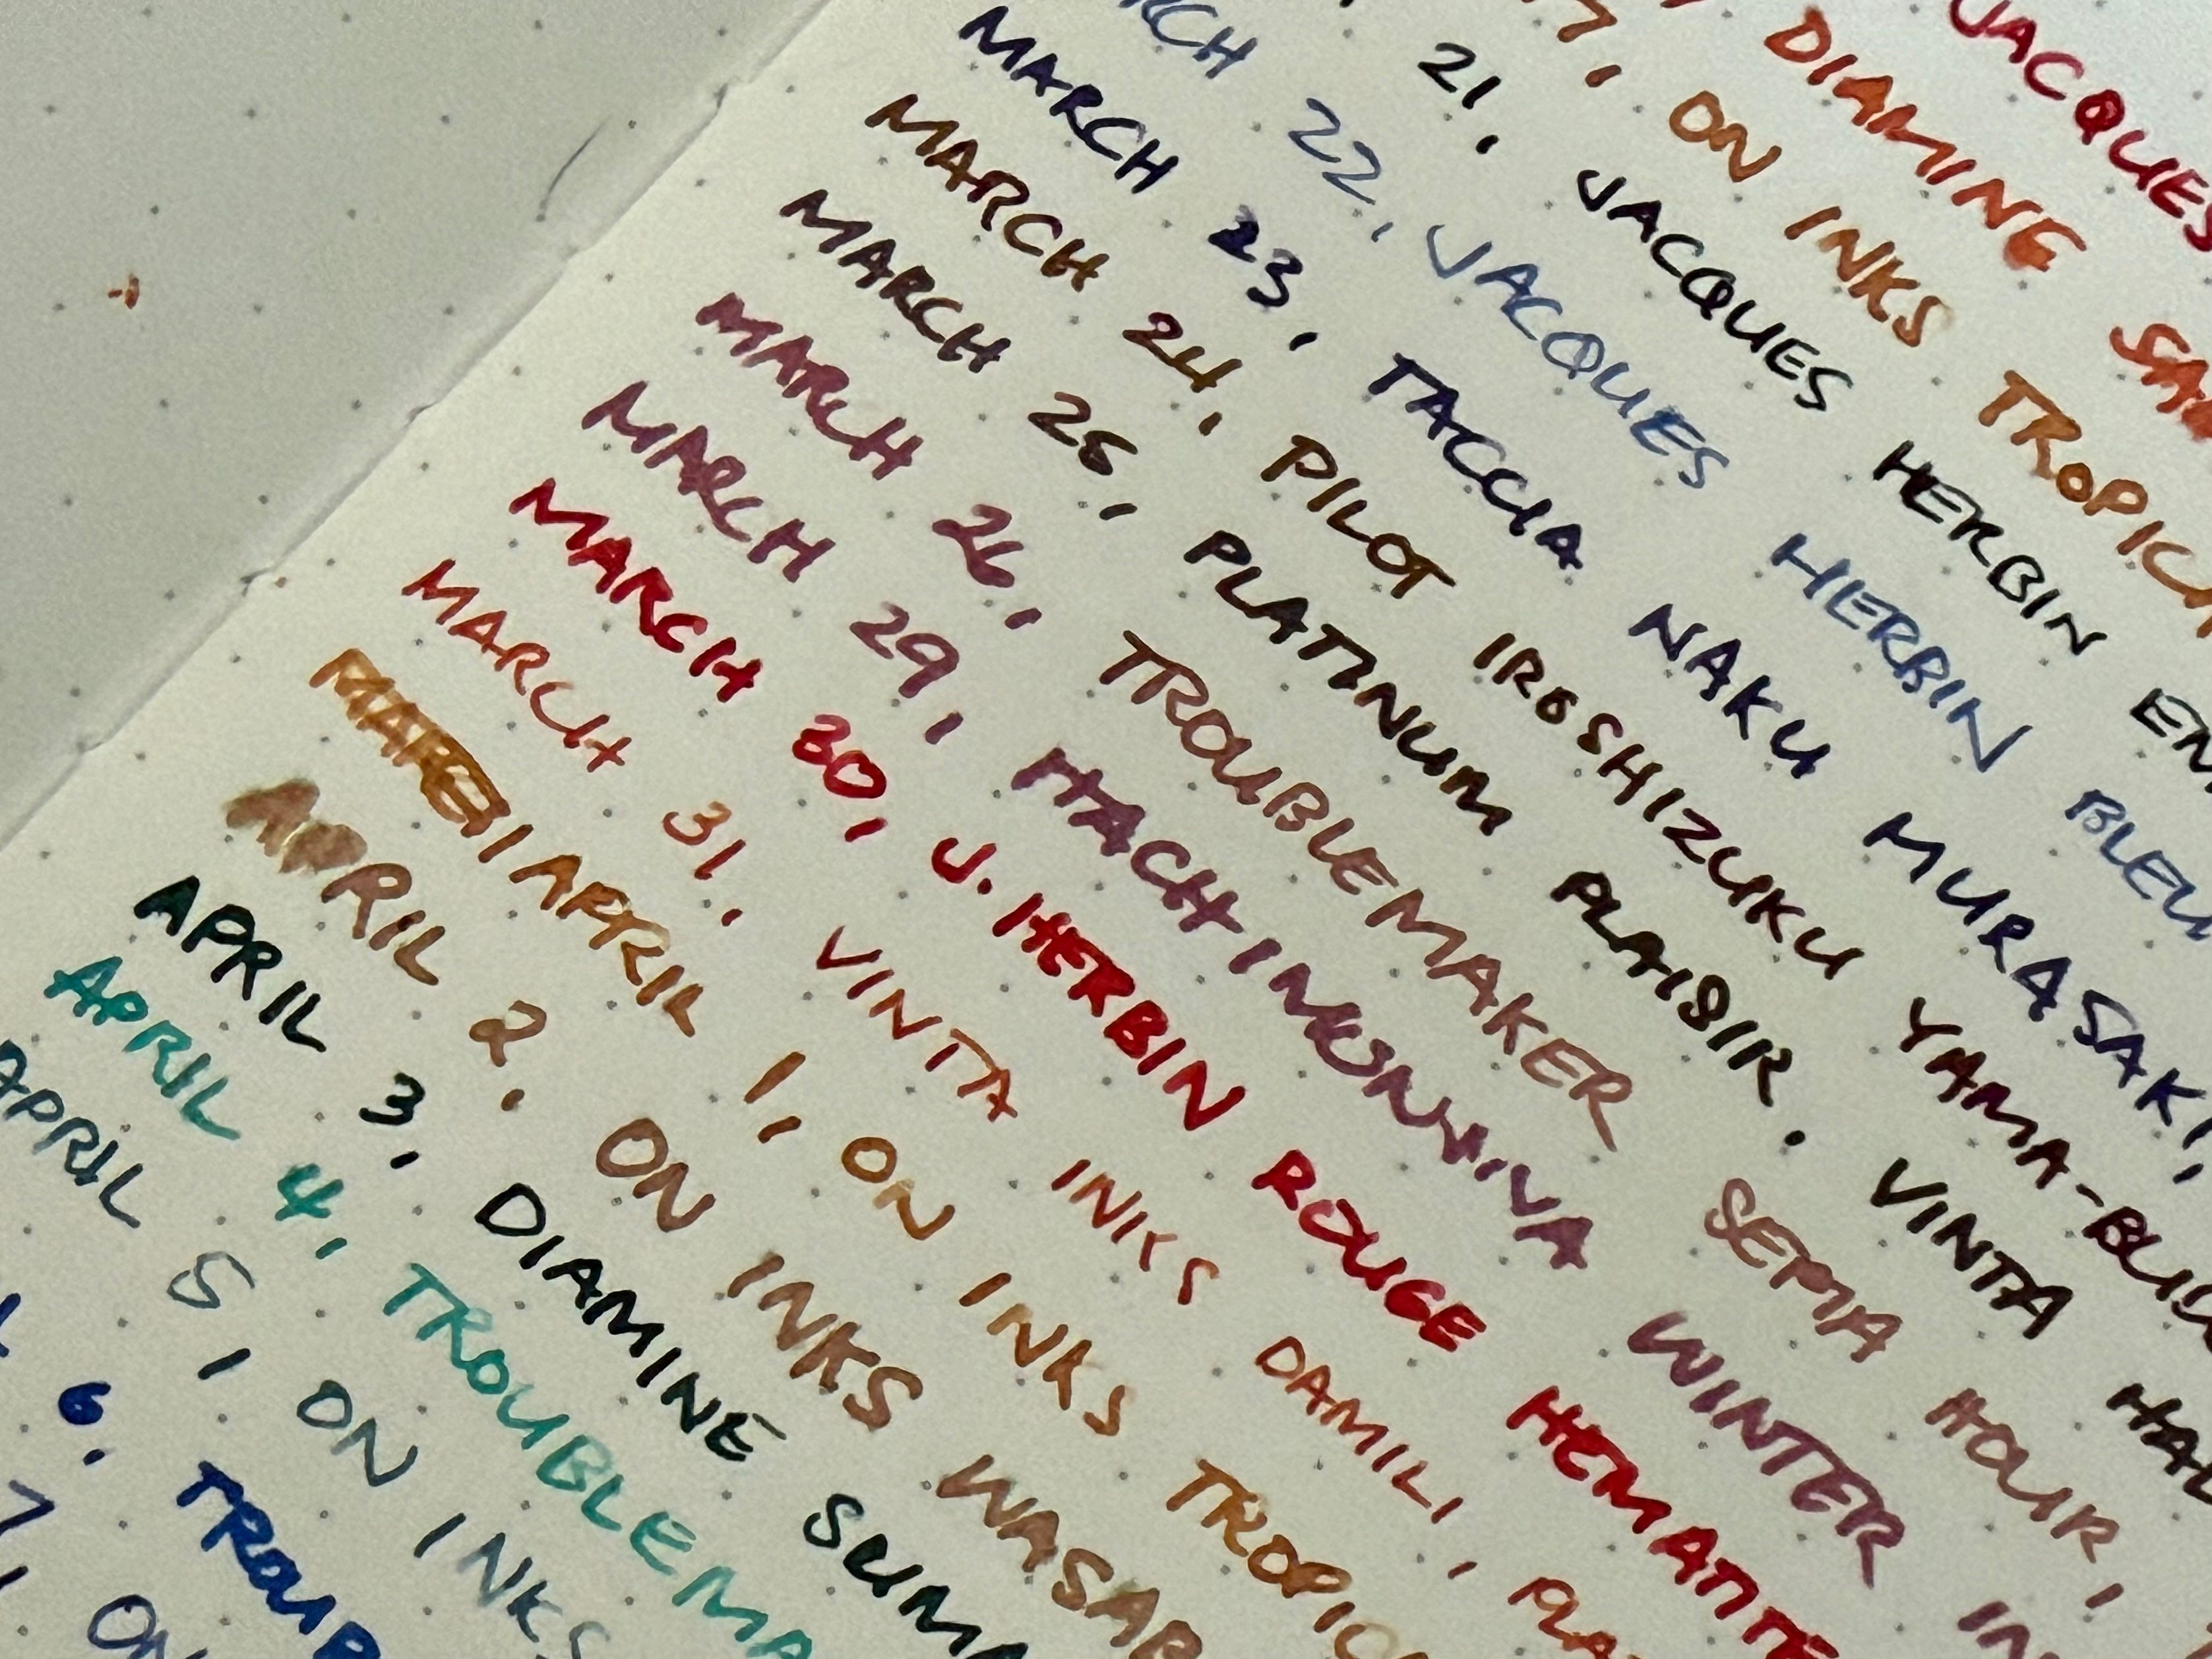 JACQUES
DIAMINE
, ON INKS TROPICA
21, JACQUES HERBIN
22, JACQUES HERBIN BLEU
MARCH 23, TACCIA NAKU MURASAKI,
MARCH 24, PILOT IROSHIZUKU YAMA-BUD
MARCH 25, PLATINUM PLAISIR, VINTA
MARCH 26, TROUBLEMAKER SEPIA HOUR,
MARCH 29, WINTER
MARCH 30, J. HERBIN ROUGE HEMATITE
MARCH 31, VINTA INKS DAMILI, PLA
APRIL 1, ON INKS TROPIC
APRIL 2, ON INKS WASAB
APRIL 3, DIAMINE SUMM
APRIL 4, TROUBLEMA
APRIL 5, ON INKS
6, TROUB
7, ON